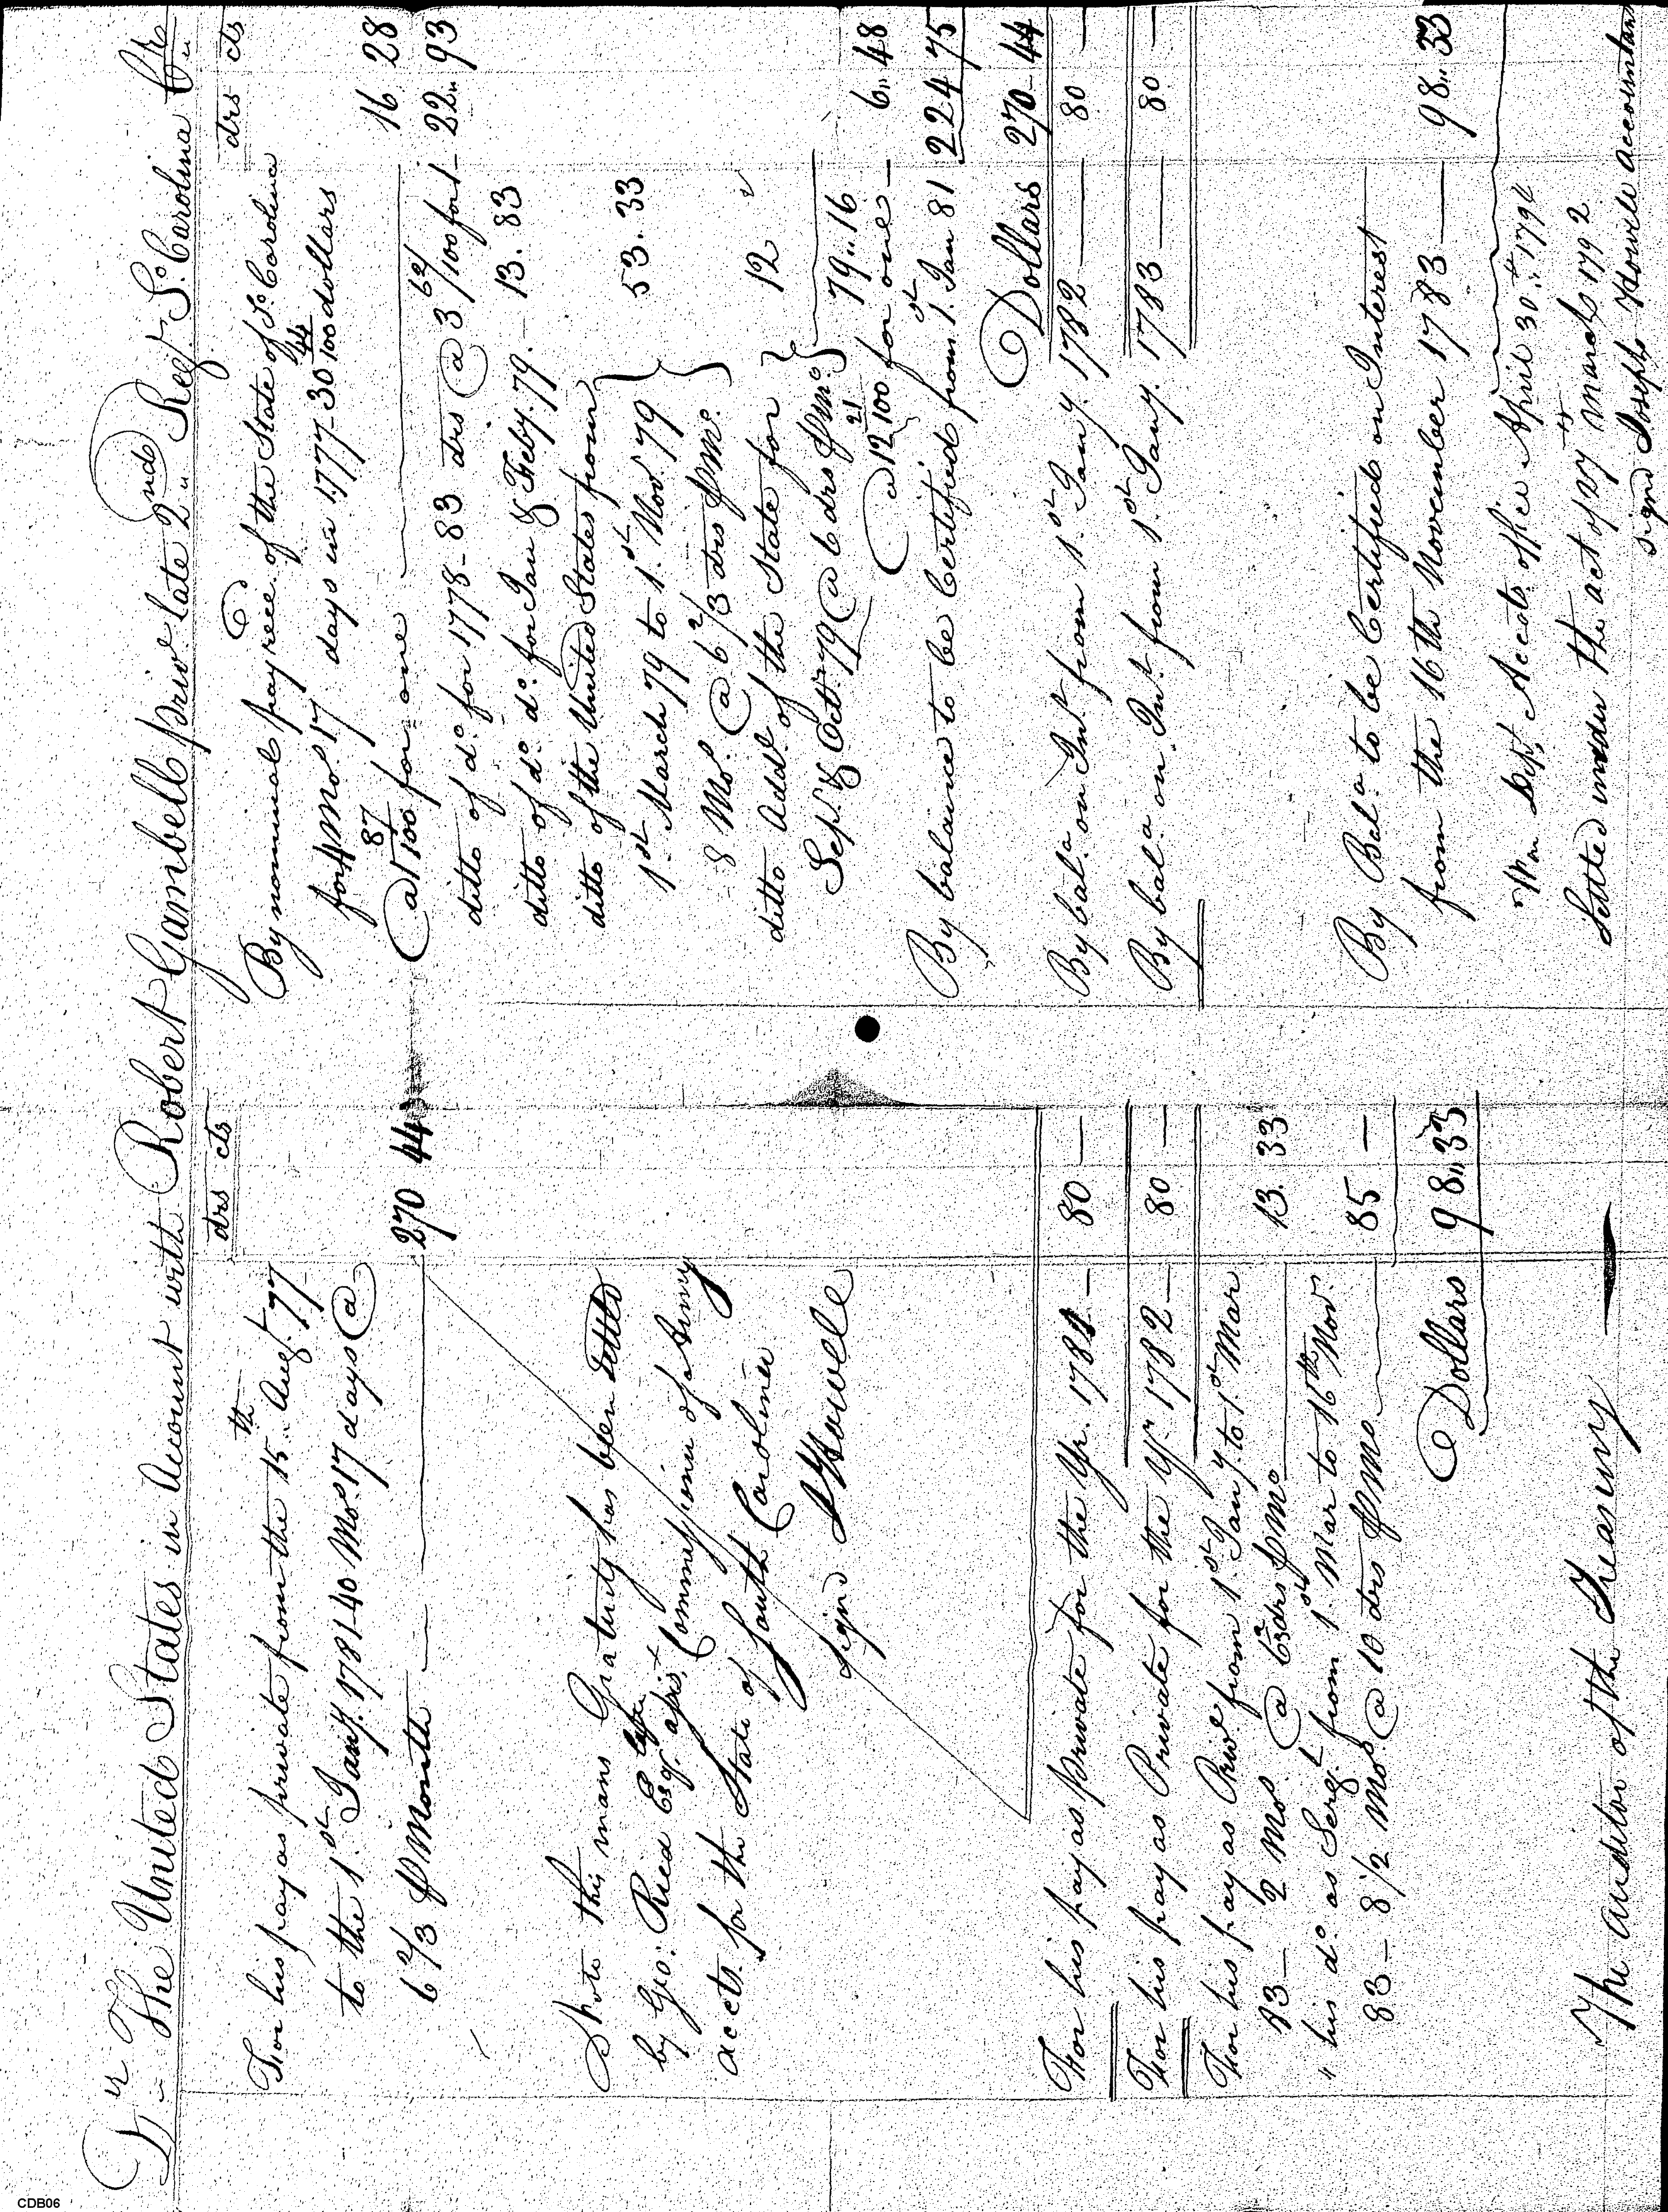 Dr. The United States in Account with Robert Gambell priv.e late 2nd Reg.t S.o Carolina Cr.
drs cts
For his pay as private from the 15th Aug.t 77
to the 1st Jany. 1781 - 40 Mo.s 17 days @
6 2/3 P Month 270 44
Note this mans Gratuity has been settled
by Geo: Reed Esq. late Commissioner of Army
accts. for the State of South Carolina
Sign'd J Howell
For his pay as private for the Yr. 1781 - 80 —
For his pay as Private for the Yr. 1782 — 80 —
For his pay as Priv.e from 1st Jany. to 1st Mar
83 - 2 Mo.s @ 6 2/3 drs P Mo 13. 33
" his do. as Serg.t from 1st Mar to 16th Nov.
83 - 8 1/2 Mo.s @ 10 drs P Mo 85 —
Dollars 98.. 33
The auditor of the Treasury
drs cts
By nominal pay rece.d of the State of S.o Carolina
for 4 Mo.s 17 days in 1777 - 30 44/100 dollars
@ 1 87/100 for one 16 28
ditto of do. for 1778 - 83 drs @ 3 62/100 for 1 - 22.. 93
ditto of do. do. for Jan & Feby. 79. - 13. 83
ditto of the United States from }
1st March 79 to 1st Nov. 79 } 53. 33
8 Mo.s @ 6 2/3 drs P Mo. }
ditto Add.l of the State for } 12
Sep.t & Oct. 79 @ 6 drs P Mo. } 79.. 16
@ 12 21/100 for one - 6.. 48
By balance to be Certified from 1st Jan 81 224 75
Dollars 270 - 44
By bal.a on Int.t from 1st Jany. 1782 80 —
By bal.a on Int.t from 1st Jany. 1783 80 —
By Bal.a to be Certified on Interest
from the 16th November 1783 — 98.. 33
War Dept. Accots. office April 30th 1794
Settled under the act of 27th March 1792
signd Joseph Howell accountant
CDB06